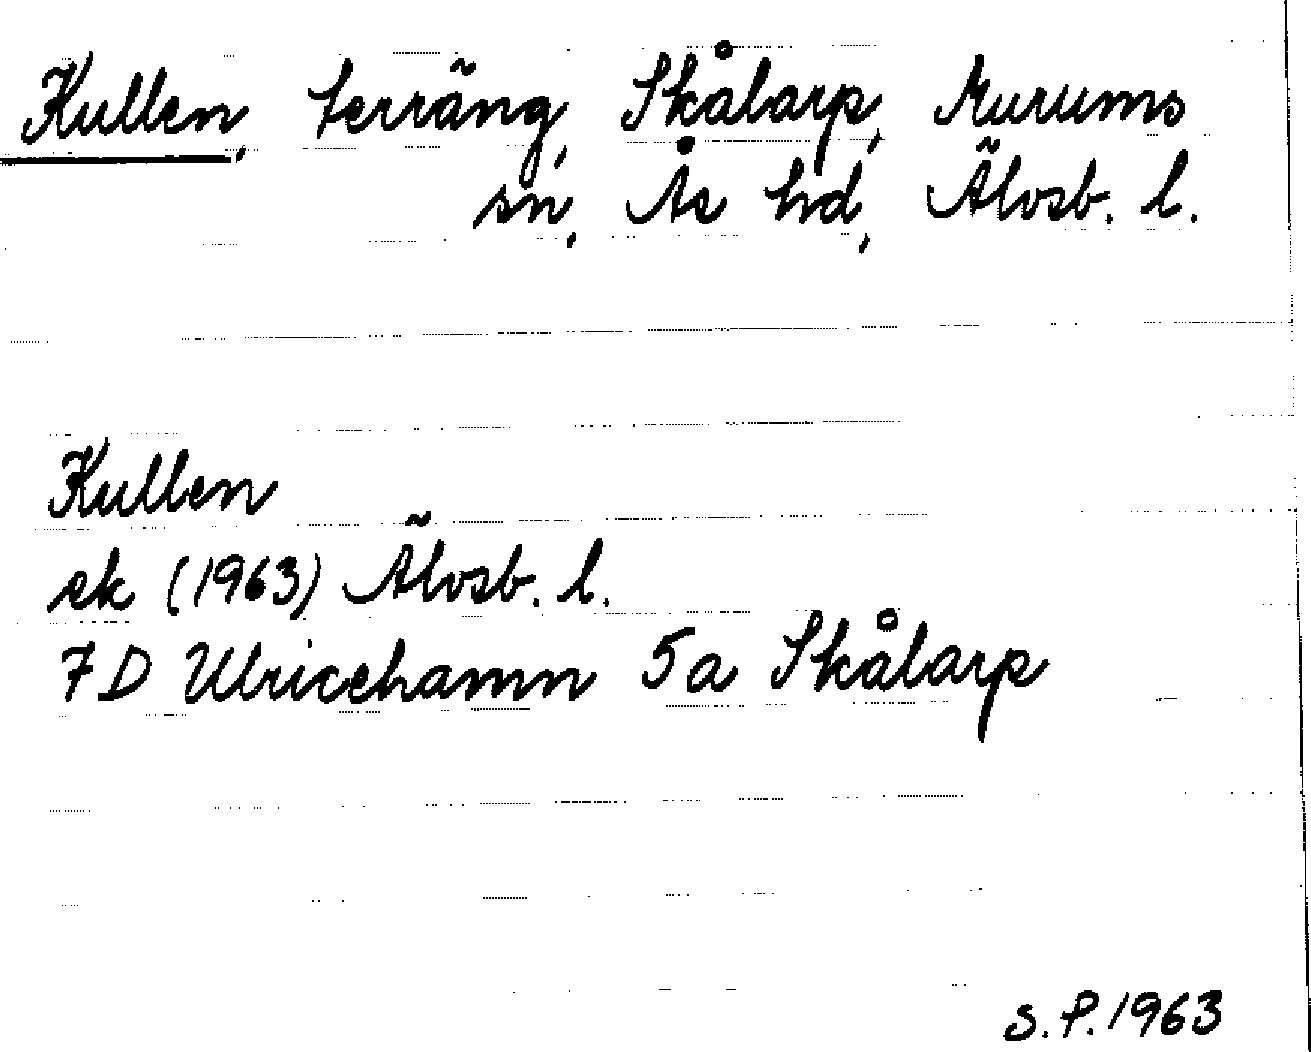 Kullen, terräng, Skålarp, Murums
sn, Ås hd, Älvsb. l.
Kullen
ek (1963) Älvsb. l.
7D Ulricehamn 5a Skålarp
S.P. 1963